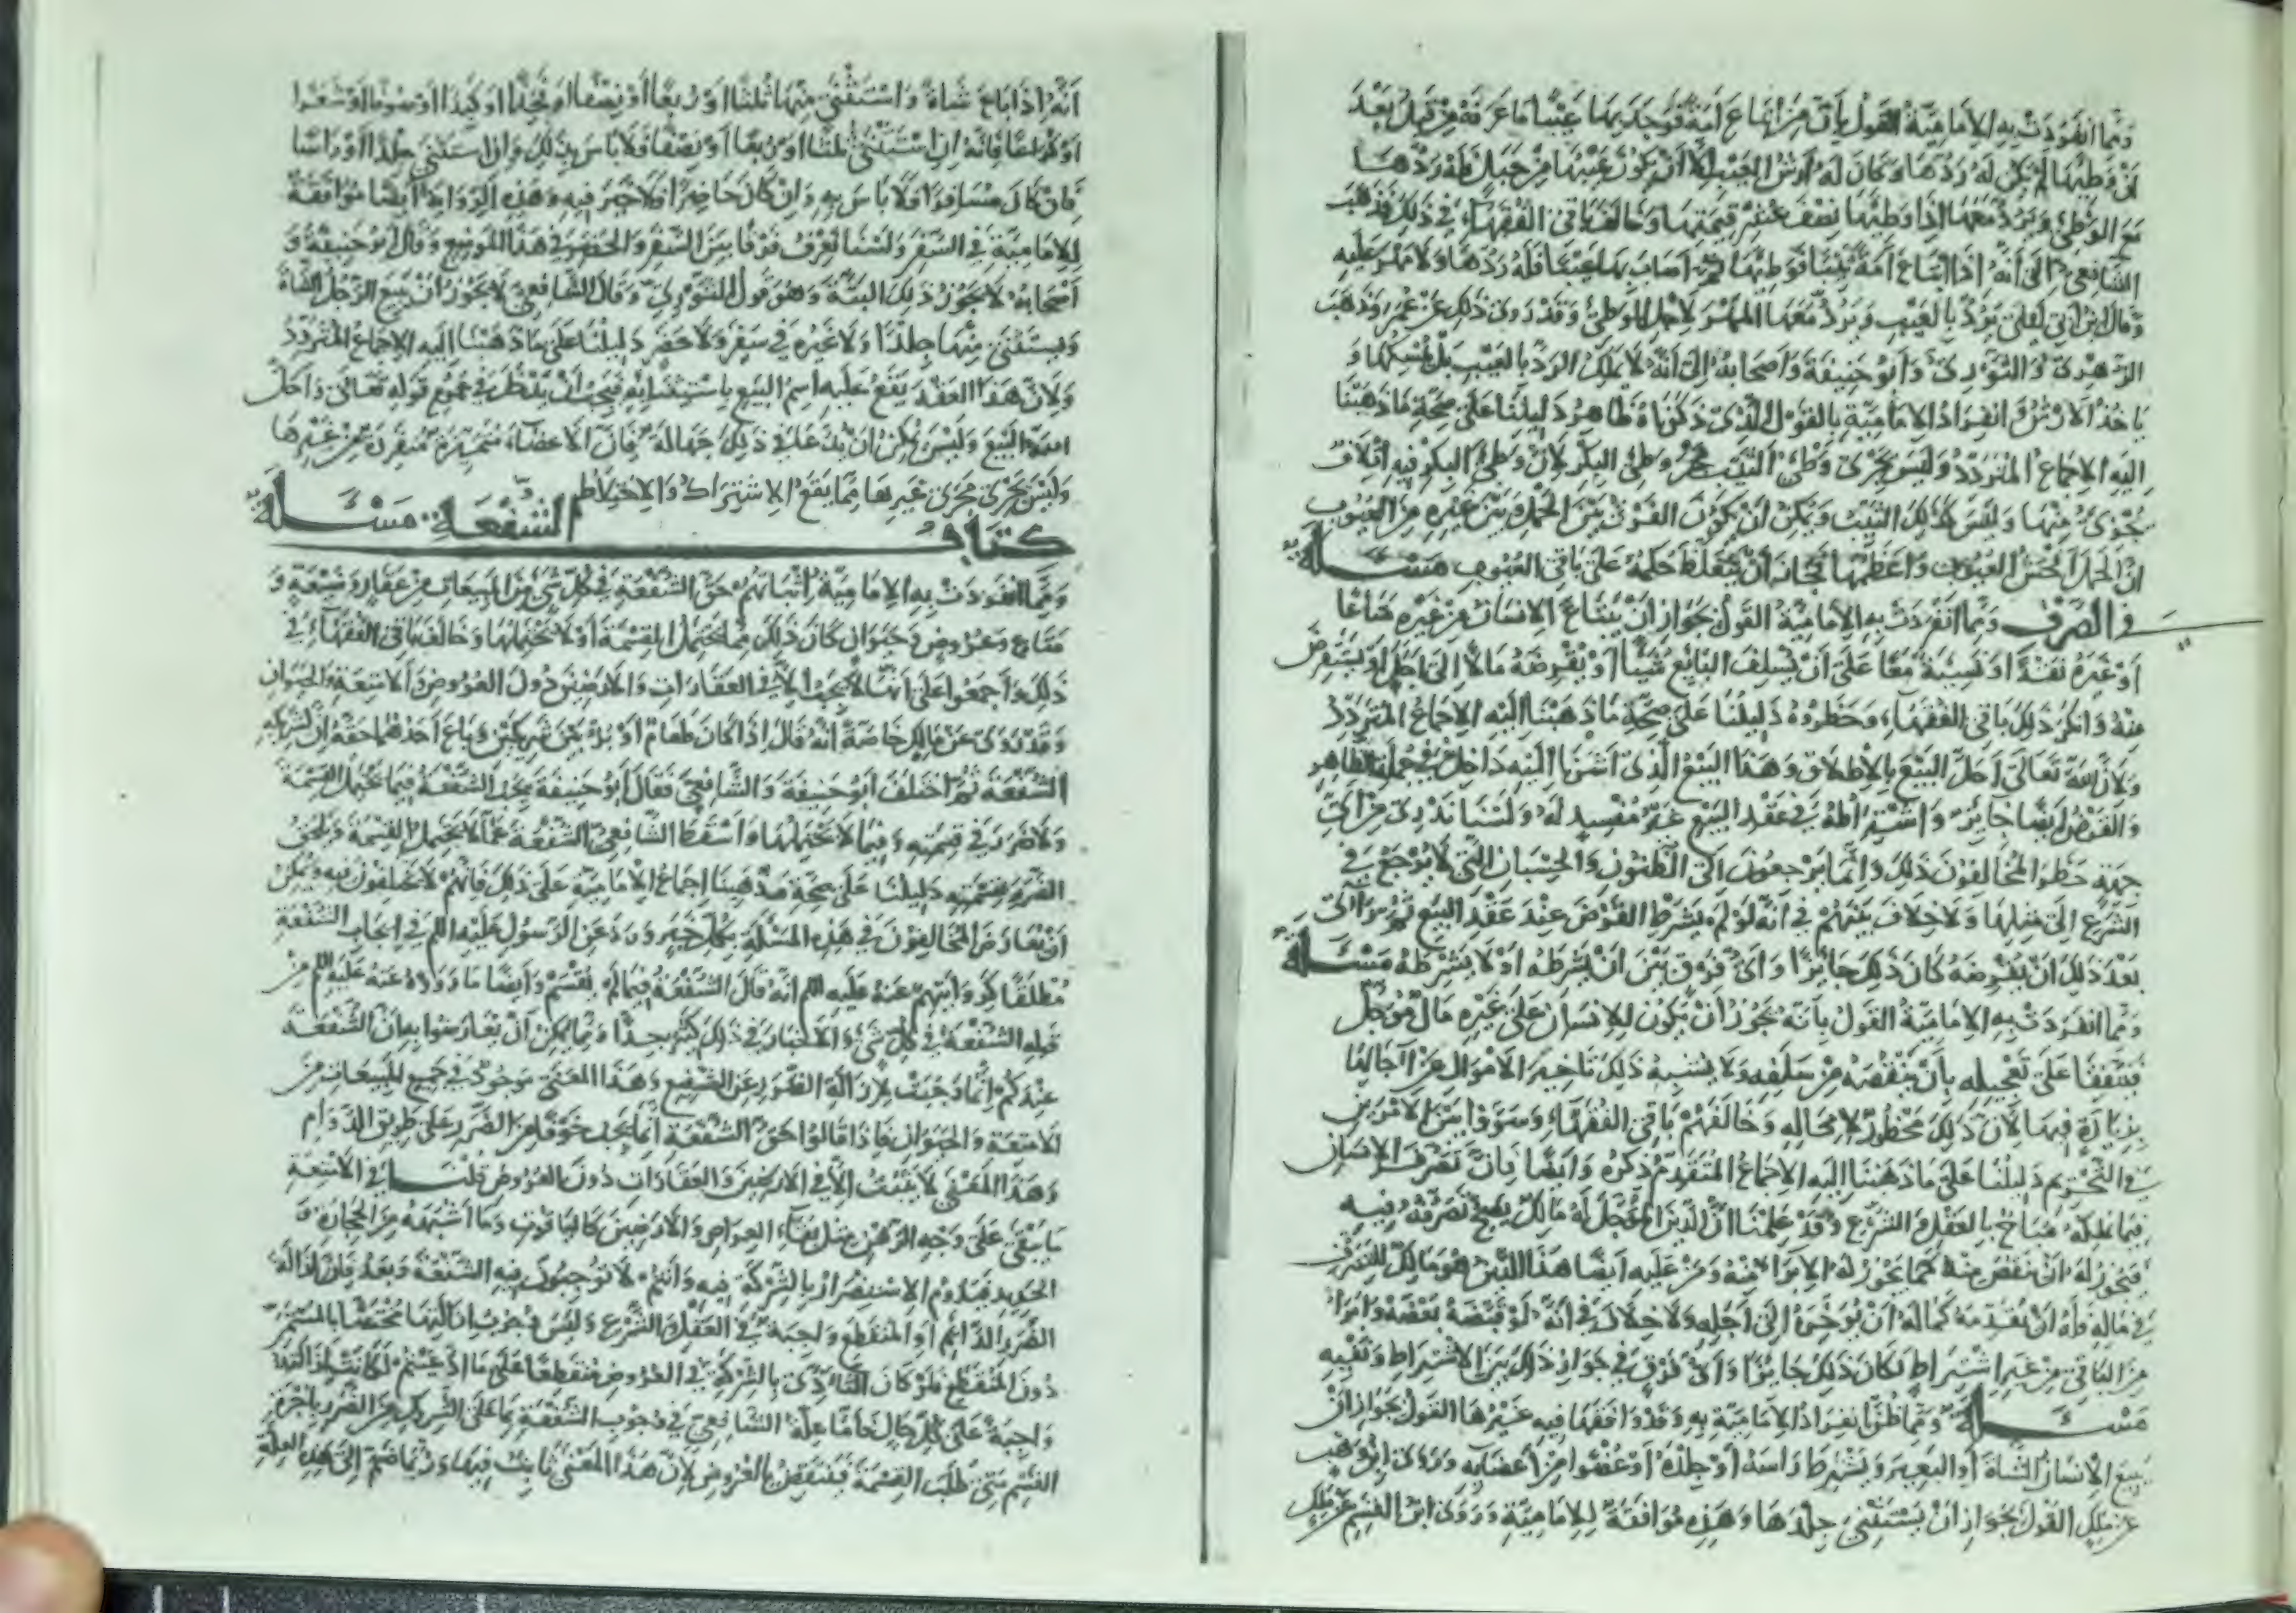 ومما انفردت به الإمامية القول بأن من ابتاع أمة فوجد بها عيبا ما عرفه من قبل بعد
أن وطئها لم يكن له ردها وكان له أرش العيب إلا أن يكون عيبها من حبل فله ردها
مع الوطئ ويرد معها إذا وطئها نصف عشر قيمتها وخالف باقي الفقهاء في ذلك فذهب
الشافعي إلى أنه إذا ابتاع أمة ثيبا فوطئها ثم أصاب بها عيبا فله ردها ولا مهر عليه
وقال ابن أبي ليلى يرد بالعيب ويرد معها المهر لأجل الوطئ وقد روى ذلك عن عمر وذهب
الزهري والثوري وأبو حنيفة وأصحابه إلى أنه لا يملك الرد بالعيب بل يمسكها و
يأخذ الأرش وانفراد الإمامية بالقول الذي ذكرناه ظاهر دليلنا على صحة ما ذهبنا
إليه الإجماع المتردد وليس يجرى وطئ الثيب مجرى وطئ البكر لأن وطئ البكر فيه إتلاف
لجزئ منها وليس كذلك الثيب ويمكن أن يكون الفرق بين الحمل وبين غيره من العيوب
أن الحمل أفحش العيوب وأعظمها فجاز أن يتغلظ حكمه على باقي العيوب مسألة
في الصرف ومما انفردت به الإمامية القول بجواز أن يبتاع الإنسان من غيره متاعا
أو غيره نقدا أو نسيئة معا على أن يسلف البائع شيئا أو يقرضه مالا إلى أجل أو يستقرض
منه وأنكر ذلك باقي الفقهاء وحظروه دليلنا على صحة ما ذهبنا إليه الإجماع المتردد
ولأن الله تعالى أحل البيع بالإطلاق وهذا البيع الذي أشرنا إليه داخل في جملة الظاهر
والقرض أيضا جائز واشتراطه في عقد البيع غير مفسد له ولسنا ندري من أي
جهة حظر المخالفون ذلك وإنما يرجعون إلى الظنون والحسبان التي لا يرجع في
الشرع إلى مثلها ولا خلاف بينهم في أنه لو لم يشرط القرض عند عقد البيع ثم رأى
بعد ذلك أن يقرضه كان ذلك جائزا وأي فرق بين أن يشرطه أو لا يشرطه مسألة
ومما انفردت به الإمامية القول بأنه يجوز أن يكون للإنسان على غيره مال مؤجل
فيتفقا على تعجيله بأن ينقصه من مبلغه ولا يشبه ذلك تأخير الأموال عن آجالها
بزيادة فيها لأن ذلك محظور لا محالة وخالفهم باقي الفقهاء وسووا بين الأمرين
في التحريم دليلنا على ما ذهبنا إليه الإجماع المتقدم ذكره وأيضا فإن تصرف الإنسان
فيما يملكه مباح بالعقل والشرع وقد علمنا أن الدين المؤجل له مالك يصح تصرفه فيه
فيجوز له أن ينقص منه كما يجوز له الإبراء منه ومن عليه أيضا هذا الدين هو مالك للتصرف
في ماله فله أن يقدمه كما له أن يؤخره إلى أجله ولا خلاف في أنه لو قبضه بعضه وأبرأه
من الباقي من غير اشتراط لكان ذلك جائزا وأي فرق في جواز ذلك بين الاشتراط ونفيه
مسألة ومما ظن انفراد الإمامية به وقد وافقها فيه غيرها القول بجواز أن
يبيع الإنسان الشاة أو البعير ويشترط رأسه أو جلده أو عضوا من أعضائه وروى ابن وهب
عن ملك القول بجواز أن يستثني جلدها وهذه موافقة للإمامية وروى ابن القسم عن ملك
أنه إذا باع شاة واستثنى منها ثلثا أو ربعا أو نصفا أو فخذا أو كبدا أو صوفا أو شعرا
أو كراعا فإنه إن استثنى ثلثا أو ربعا أو نصفا فلا بأس بذلك وإن استثنى جلدا أو رأسا
فإن كان مسافرا فلا بأس به وإن كان حاضرا فلا خير فيه وهذه الرواية أيضا موافقة
للإمامية في السفر ولسنا نعرف فرقا بين السفر والحضر في هذا الموضع وقال أبو حنيفة و
أصحابه لا يجوز ذلك البتة وهو قول الثوري وقال الشافعي لا يجوز أن يبيع الرجل الشاة
ويستثنى منها جلدا ولا غيره في سفر ولا حضر دليلنا على ما ذهبنا إليه الإجماع المتردد
ولأن هذا العقد يقع عليه اسم البيع باستثنائه فيجب أن يدخل في عموم قوله تعالى وأحل
الله البيع وليس يمكن أن يدعى في ذلك جهالة فإن الأعضاء متميزة منفردة عن غيرها
وليس يجرى مجرى غيرها مما يقع الاشتراك والاختلاط
كتاب الشفعة مسألة
ومما انفردت به الإمامية إثباتهم حق الشفعة في كل شيء من المبيعات من عقار وضيعة و
متاع وعروض وحيوان كان ذلك مما يحتمل القسمة أو لا يحتملها وخالف باقي الفقهاء في
ذلك وأجمعوا على أنها لا تجب إلا في العقارات والأرضين دون العروض والأمتعة والحيوان
وقد روى عن مالك خاصة أنه قال إذا كان طعام أو بر بين شريكين وباع أحدهما حقه أن لشريكه
الشفعة ثم اختلف أبو حنيفة والشافعي فقال أبو حنيفة تجب الشفعة فيما يحتمل القسمة
ولا ضرر في قسمته وفيما لا يحتملها وأسقط الشافعي الشفعة عما لا يحتمل القسمة ويلحق
الضرر بقسمته دليلنا على صحة مذهبنا إجماع الإمامية على ذلك فإنهم لا يختلفون فيه ويمكن
أن يعارض المخالفون في هذه المسئلة بكل خبر ورد عن الرسول عليه السلم في إيجاب الشفعة
مطلقا كروايتهم عنه عليه السلم أنه قال الشفعة فيما لم يقسم وأيضا ما رووه عنه عليه السلم من
قوله الشفعة في كل شيء والأخبار في ذلك كثيرة جدا ومما يمكن أن يعارضوا به أن الشفعة
عندكم إنما وجبت لإزالة الضرر عن الشفيع وهذا المعنى موجود في جميع المبيعات من
الأمتعة والحيوان فإذا قالوا حق الشفعة إنما يجب خوفا من الضرر على طريق الدوام
وهذا المعنى لا يثبت إلا في الأرضين والعقارات دون العروض قلنا في الأمتعة
ما يبقى على وجه الدهر مثل بقاء العراص والأرضين كالياقوت وما أشبهه من الحجارة و
الحديد فيدوم الاستضرار بالشركة فيه وأنتم لا توجبون فيه الشفعة وبعد فإن إزالة
الضرر الدائم أو المنقطع واجبة في العقل والشرع وليس وجوب إزالتها مختصا بالمستمر
دون المنقطع فلو كان التأذي بالشركة في العروض منقطعا على ما ادعيتم لكانت إزالته
واجبة على كل حال فأما علة الشافعي في وجوب الشفعة بما على الشريك من الضرر بأجرة
القسم متى طلب القسمة فينتقض بالعروض لأن هذا المعنى ثابت فيها وربما ضم إلى هذه العلة